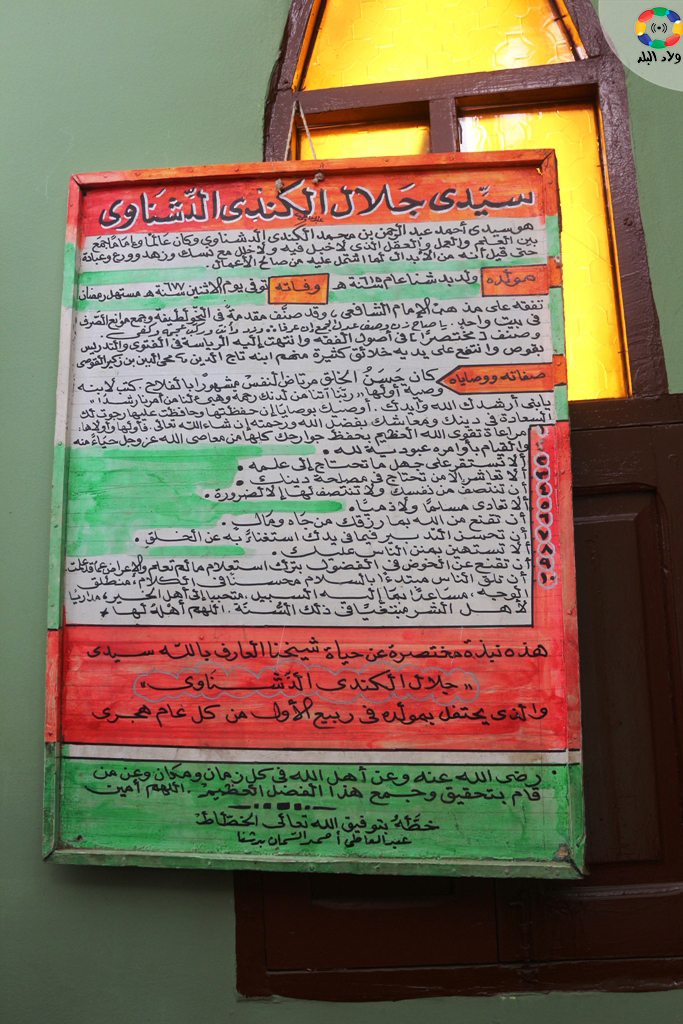 ولاد البلد
سيدى جلال الكندى الدشناوى
هو سيدى أحمد عبد الرحمن بن محمد الكندى الدشناوي وكان عالما وإماما جمع
بين العلم والعمل والعقل الذى لا خبل فيه ولا خلل مع نسك وزهد وورع وعبادة
حتى قيل أنه من الأبدال لما اشتمل عليه من صالح الأعمال.
مولده ولد بدشنا عام ٦١٥ سنة هـ وفاته توفى يوم الاثنين سنة ٦٧٧ هـ مستهل رمضان
تفقه على مذهب الإمام الشافعى، وقد صنف مقدمة فى النحو لطيفة وجمع موانع الصرف
فى بيت واحد.
وصنف (مختصرا) فى أصول الفقه وانتهت إليه الرياسة فى الفتوى والتدريس
بقوص وانتفع على يديه خلائق كثيرة منهم ابنه تاج الدين
صفاته ووصاياه كان حسن الخلق مرتاض النفس مشهورا بالفلاح. كتب لابنه
وصية أولها "ربنا آتنا من لدنك رحمة وهيئ لنا من أمرنا رشدا"
يابنى أرشدك الله وأيدك. أوصيك بوصايا إن حفظتها وحافظت عليها رجوت لك
السعادة فى دينك ومعاشك بفضل الله ورحمته إن شاء الله تعالى. فأولها وأولاها:
مراعاة تقوى الله العظيم بحفظ جوارحك كلها من معاصى الله عز وجل حياء منه
والقيام بأوامره عبودية لله.
ألا تستقر على جهل ما تحتاج إلى علمه.
ألا تعاشر إلا من تحتاج فى مصلحة دينك.
أن تنتصف من نفسك ولا تنتصف لها إلا لضرورة.
ألا تعادى مسلما ولا ذميا.
أن تقنع من الله بما رزقك من جاه ومال.
أن تحسن التدبير فيما فى يدك استغناء به عن الخلق.
ألا تستهين بمنن الناس عليك.
أن تقنع عن الخوض فى الفضول بترك استعلام ما لم تعلم والإعراض عما قد علمت
أن تلق الناس مبتدءا بالسلام محسنا فى الكلام، منطلق
الوجه، مساعدا بما إليه السبيل، متحببا إلى أهل الخير، مداريا
لأهل الشر مبتغيا فى ذلك السنة. اللهم أهله لها
هذه نبذة مختصرة عن حياة شيخنا العارف بالله سيدى
"جلال الكندى الدشناوى"
والذى يحتفل بمولده فى ربيع الأول من كل عام هجرى
رضى الله عنه وعن أهل الله فى كل زمان ومكان وعن من
قام بتحقيق وجمع هذا الفضل العظيم. اللهم آمين
خطه بتوفيق الله تعالى الخطاط
عبدالعاطى أحمد السمان بدشنا